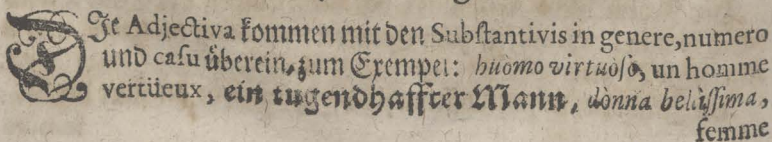 DJe Adjectiva kommen mit den Substantivis in genere, numero
und casu überein, zum Exempel: huomo virtuoso, un homme
vertüeux, ein tugendhaffter Mann, donna belissima,
femme